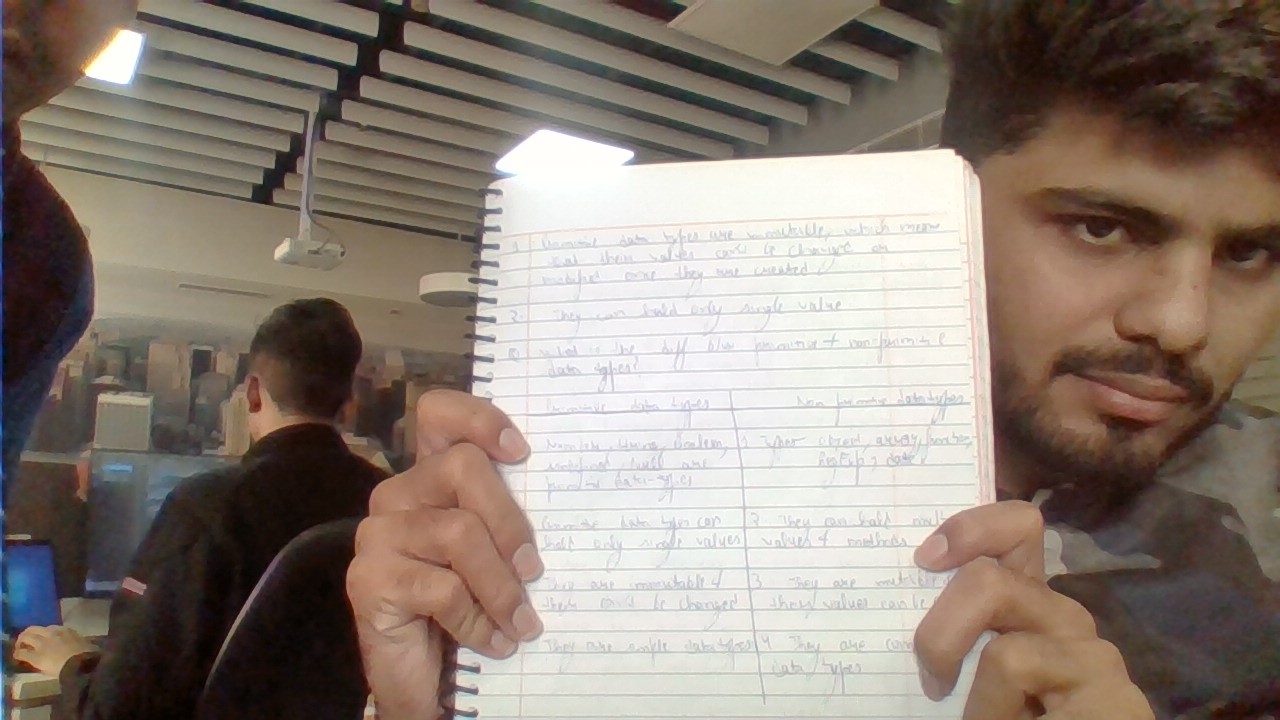 1 Primitive data types are immutable, which means
that their values can't be changed or
modified once they are created
2. They can hold only single value
Q what is the diff b/w primitive & non primitive
data types?
Primitive data types
Non primitive datatypes
Number, String, boolean,
undefined, are
primitive data-types
1. Types object, array, function,
RegExp, date.
Primitive data types can
hold only single values
2 They can hold
values & methods
They are immutable &
their can't be changed
3 They are mutable &
their values can be
They are simple data types
4 They are
data types